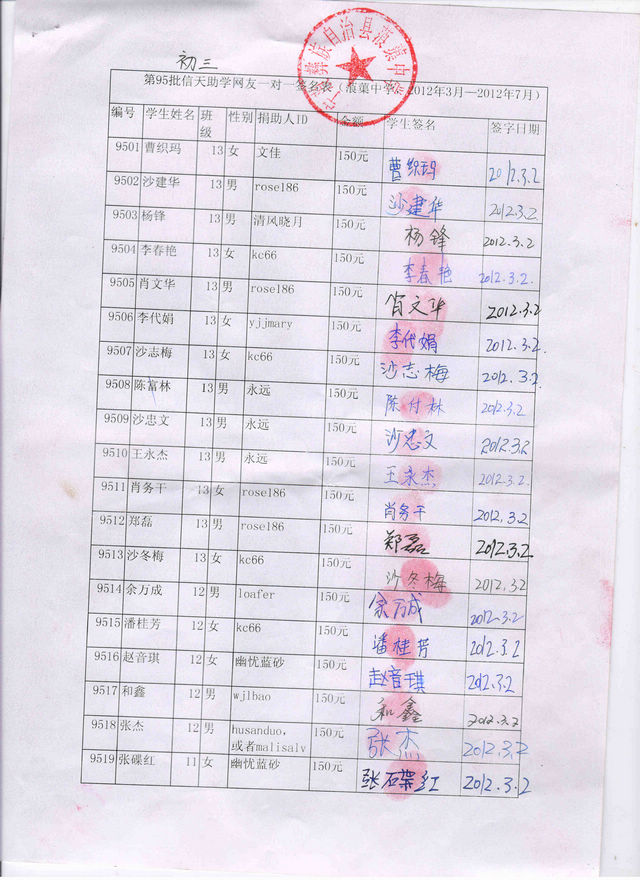 初三
彝族自治县蒗蕖中学
第95批信天助学网友一对一签名表（蒗蕖中学 2012年3月—2012年7月）
编号 学生姓名 班级 性别 捐助人ID 金额 学生签名 签字日期
9501 曹织玛 13 女 文佳 150元 曹织玛 2012.3.2
9502 沙建华 13 男 rose186 150元 沙建华 2012.3.2
9503 杨锋 13 男 清风晓月 150元 杨锋 2012.3.2
9504 李春艳 13 女 kc66 150元 李春艳 2012.3.2.
9505 肖文华 13 男 rose186 150元 肖文华 2012.3.2
9506 李代娟 13 女 yjjmary 150元 李代娟 2012.3.2.
9507 沙志梅 13 女 kc66 150元 沙志梅 2012.3.2.
9508 陈富林 13 男 永远 150元 陈付林 2012.3.2
9509 沙忠文 13 男 永远 150元 沙忠文 2012.3.2
9510 王永杰 13 男 永远 150元 王永杰 2012.3.2.
9511 肖务干 13 女 rose186 150元 肖务干 2012.3.2
9512 郑磊 13 男 rose186 150元 郑磊 2012.3.2
9513 沙冬梅 13 女 kc66 150元 沙冬梅 2012.3.2
9514 余万成 12 男 loafer 150元 余万成 2012.3.2
9515 潘桂芳 12 女 kc66 150元 潘桂芳 2012.3.2
9516 赵音琪 12 女 幽忧蓝砂 150元 赵音琪 2012.3.2
9517 和鑫 12 男 wjlbao 150元 和鑫 2012.3.2
9518 张杰 12 男 husanduo，或者malisalv 150元 张杰 2012.3.2
9519 张碟红 11 女 幽忧蓝砂 150元 张碟红 2012.3.2